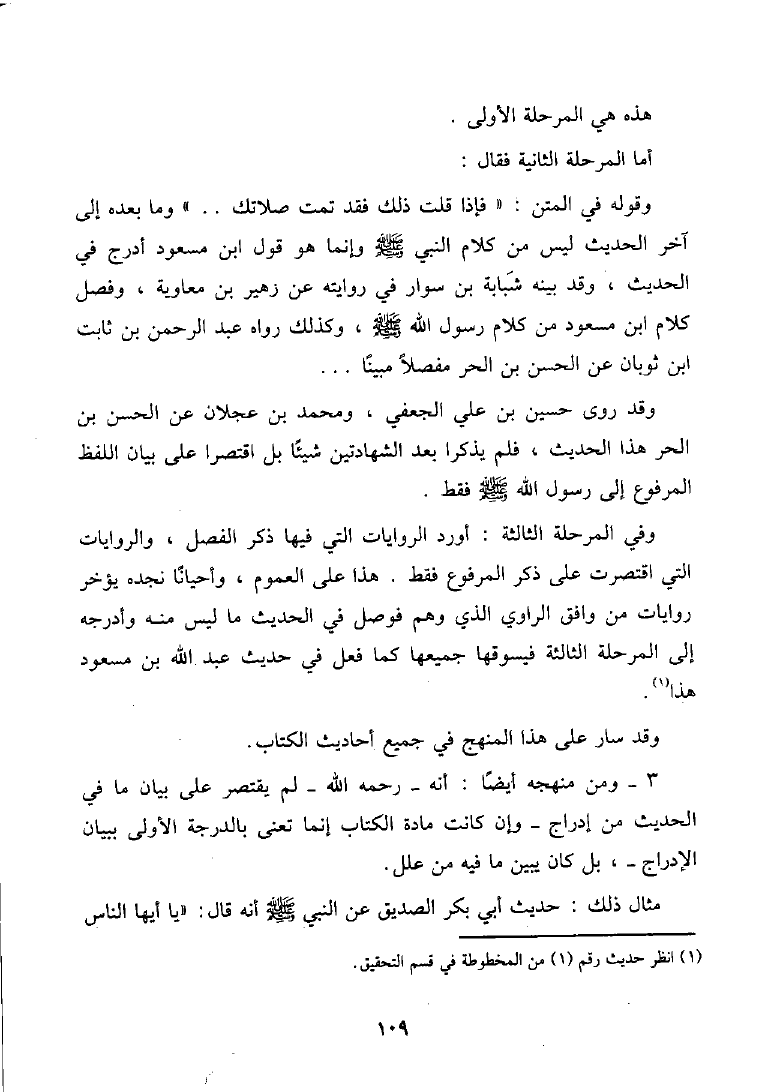 هذه هي المرحلة الأولى .
أما المرحلة الثانية فقال :
وقوله في المتن : « فإذا قلت ذلك فقد تمت صلاتك . . » وما بعده إلى
آخر الحديث ليس من كلام النبي ﷺ وإنما هو قول ابن مسعود أدرج في
الحديث ، وقد بينه شَبابة بن سوار في روايته عن زهير بن معاوية ، وفصل
كلام ابن مسعود من كلام رسول الله ﷺ ، وكذلك رواه عبد الرحمن بن ثابت
ابن ثوبان عن الحسن بن الحر مفصلاً مبينًا . . .
وقد روى حسين بن علي الجعفي ، ومحمد بن عجلان عن الحسن بن
الحر هذا الحديث ، فلم يذكرا بعد الشهادتين شيئًا بل اقتصرا على بيان اللفظ
المرفوع إلى رسول الله ﷺ فقط .
وفي المرحلة الثالثة : أورد الروايات التي فيها ذكر الفصل ، والروايات
التي اقتصرت على ذكر المرفوع فقط . هذا على العموم ، وأحيانًا نجده يؤخر
روايات من وافق الراوي الذي وهم فوصل في الحديث ما ليس منه وأدرجه
إلى المرحلة الثالثة فيسوقها جميعها كما فعل في حديث عبد الله بن مسعود
هذا(١).
وقد سار على هذا المنهج في جميع أحاديث الكتاب.
٣ ـ ومن منهجه أيضًا : أنه ـ رحمه الله ـ لم يقتصر على بيان ما في
الحديث من إدراج ـ وإن كانت مادة الكتاب إنما تعنى بالدرجة الأولى ببيان
الإدراج ـ ، بل كان يبين ما فيه من علل.
مثال ذلك : حديث أبي بكر الصديق عن النبي ﷺ أنه قال: «يا أيها الناس
(١) انظر حديث رقم (١) من المخطوطة في قسم التحقيق.
١٠٩